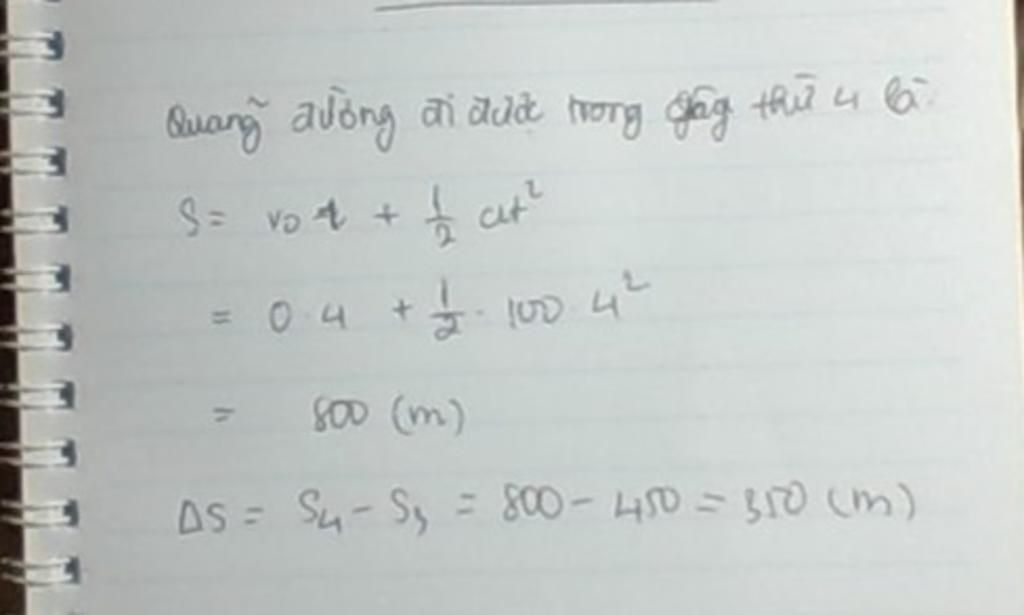 Quãng đường đi được trong giây thứ 4 là:
S = v₀t + 1/2 at²
= 0.4 + 1/2 . 100 . 4²
= 800 (m)
ΔS = S₄ - S₃ = 800 - 450 = 350 (m)